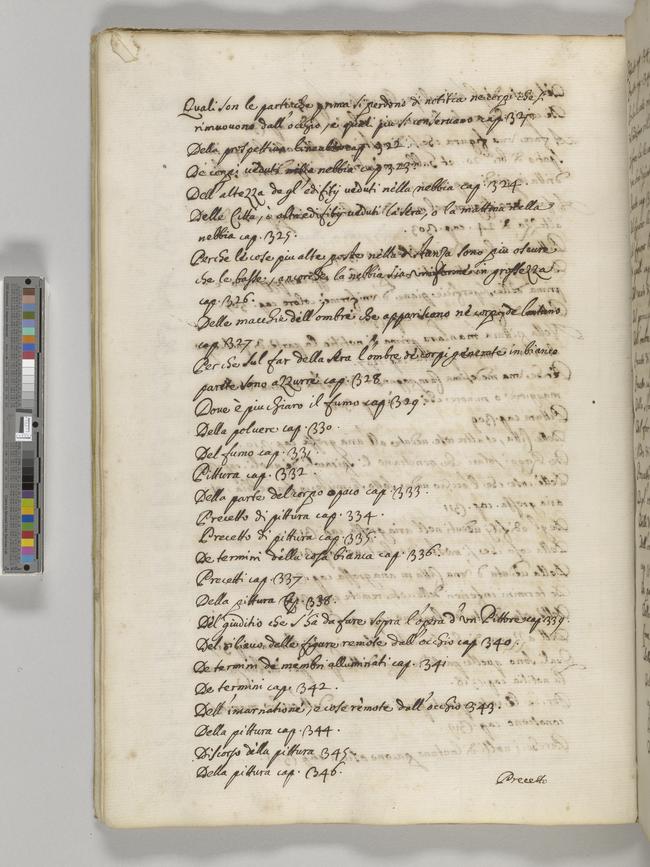 Quali son le parti che prima si perdono di notitia ne corpi che si
rimuovono dall'occhio, e quali piu si conservano cap. 321.
Della prospettiva lineale cap. 322.
De corpi veduti nella nebbia cap. 323.
Dell'altezza degl'edifitij veduti nella nebbia cap. 324.
Delle Citta, o altri edifitij veduti la sera, o la mattina nella
nebbia cap. 325.
Perche le cose piu alte poste nella distanza sono piu oscure
che le basse, ancorche la nebbia sia uniforme in grossezza
cap. 326.
Delle macchie dell'ombre che apparitiono ne corpi de lontano
cap. 327
Perche sul far della sera l'ombre de corpi generate in bianco
parete sono azzurre cap. 328
Dove è piu chiaro il fumo cap. 329.
Della polvere cap. 330.
Del fumo cap. 331.
Pittura cap. 332
Della parte del corpo opaco cap. 333.
Precetto di pittura cap. 334.
Precetto di pittura cap. 335.
De termini della cosa bianca cap. 336.
Precetti cap. 337
Della pittura Cap. 338.
Del giuditio che s'hà da fare sopra l'opera d'un Pittore cap. 339.
Del rilievo delle figure remote dall'occhio cap. 340.
De termini de membri alluminati cap. 341
De termini cap. 342.
Dell'incarnatione, e cose remote dall'occhio 343.
Della pittura cap. 344.
Discorso della pittura 345.
Della pittura cap. 346.
Precetto